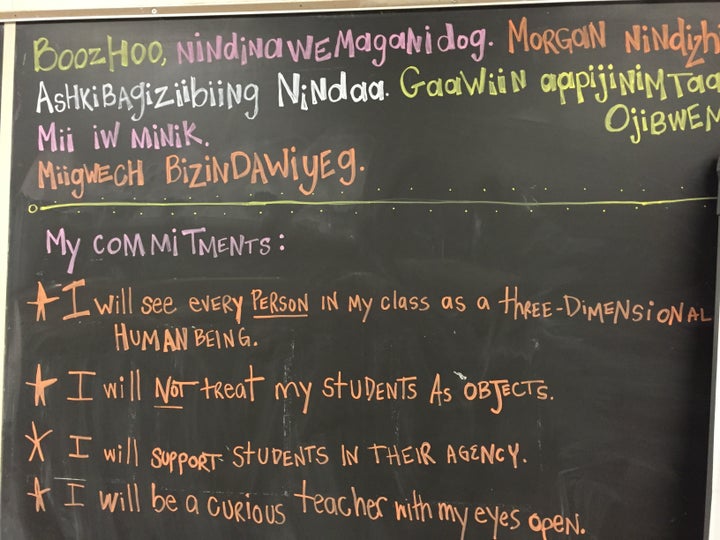 BoozHoo, NiNdiNaWEMagaNidog. MORGaN NiNdizh
AsHKiBAgiziibiiNg NiNdaa. GaaWiiN aapijiNiMTaa
Mii iW MiNiK. OjiBWEM
MiigWECH BiZiNDAWiyEg.
My COMMiTMENTS:
★ I will see EVERY PERSON IN My class as a THREE-DiMENSiONAL
HUMAN BEING.
★ I will NOT treat my STUDENTS As "OBJECTS.
★ I will SUPPORT STUDENTS IN THEIR AGENCY.
★ I will be a CURIOUS teacher with my eyes OPEN.